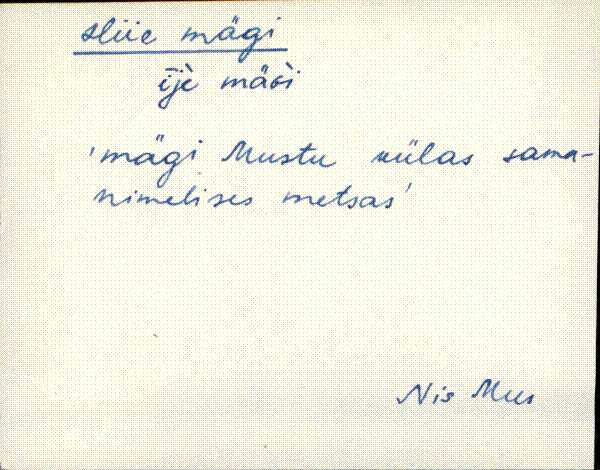 Hiie mägi
īje mäGi
'mägi Mustu külas sama-
nimelises metsas'
Nis Mus